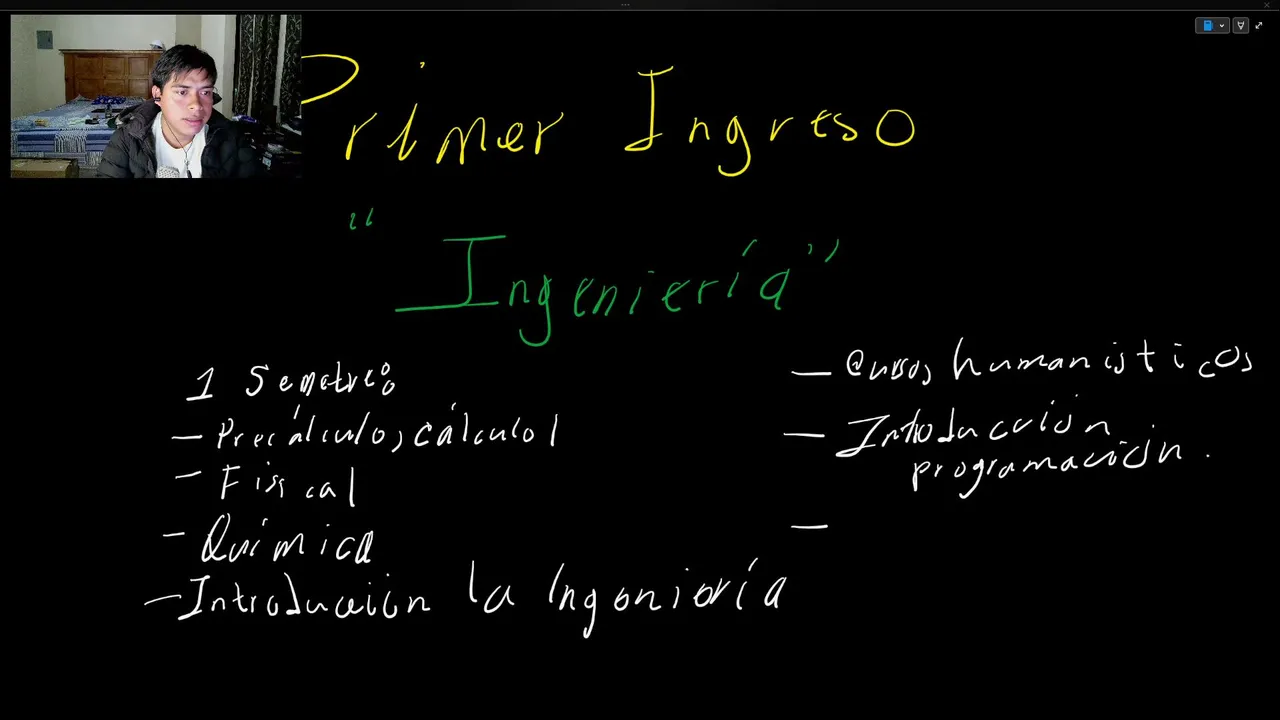 Primer Ingreso
"Ingeniería"
1 Semetre:
- Precálculo, cálculo 1
- Fisical
- Química
- Introducción la Ingoniería
- Cursos humanisticos
- Introducción
programación.
-